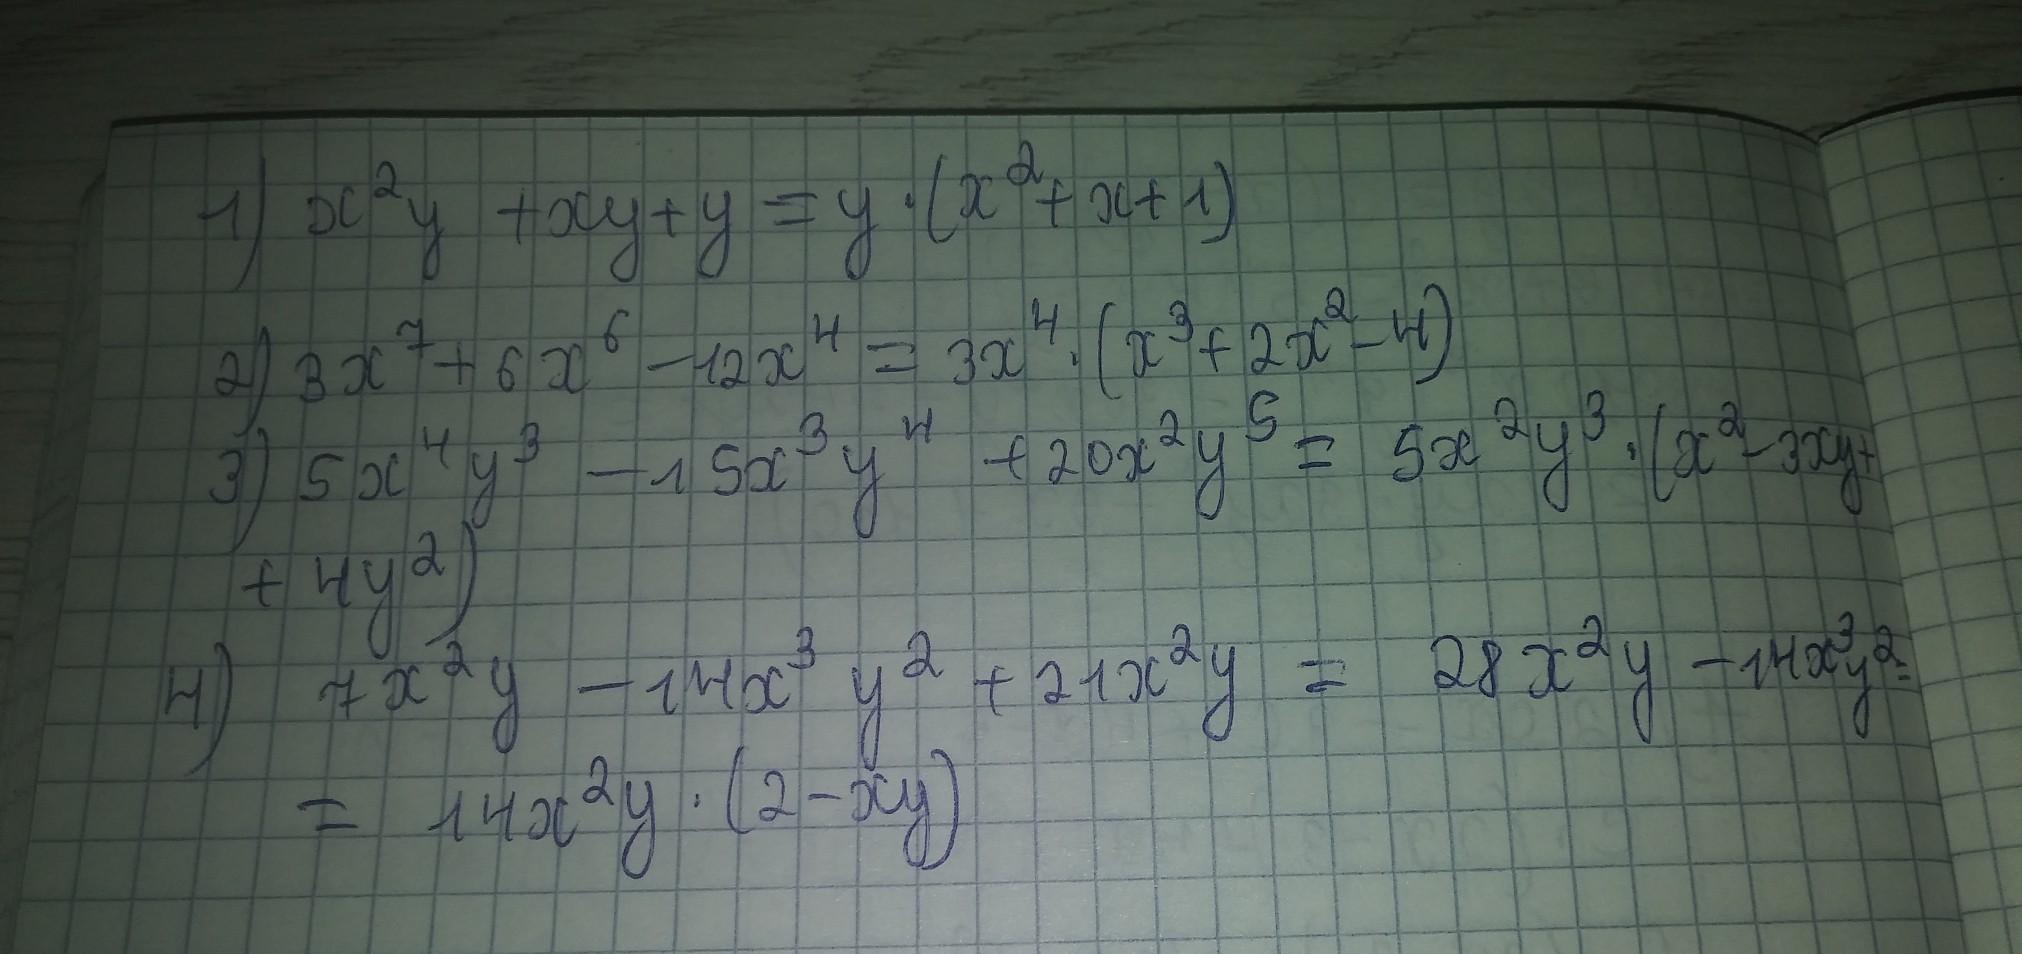 1) x²y + xy + y = y · (x² + x + 1)
2) 3x⁷ + 6x⁶ - 12x⁴ = 3x⁴ · (x³ + 2x² - 4)
3) 5x⁴y³ - 15x³y⁴ + 20x²y⁵ = 5x²y³ · (x² - 3xy +
+ 4y²)
4) 7x²y - 14x³y² + 21x²y = 28x²y - 14x³y² =
= 14x²y · (2 - xy)